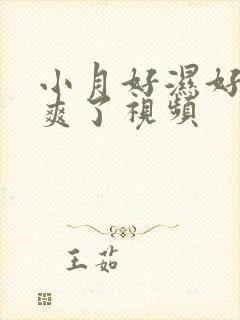 小月好濕好
爽了視頻
王茹